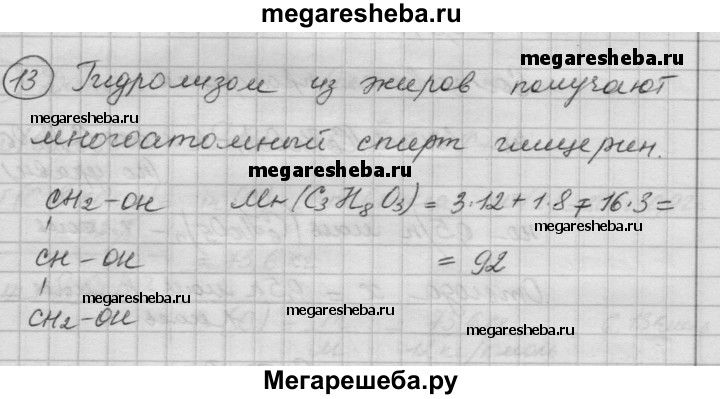 megaresheba.ru
megaresheba.ru
13 Гидролизом из жиров получают
megaresheba.ru
многоатомный спирт глицерин.
megaresheba.ru
CH2-OH Mr(C3H8O3) = 3·12+1·8+16·3=
megaresheba.ru
CH-OH = 92
megaresheba.ru
megaresheba.ru
CH2-OH
megaresheba.ru
Мегарешеба.ру